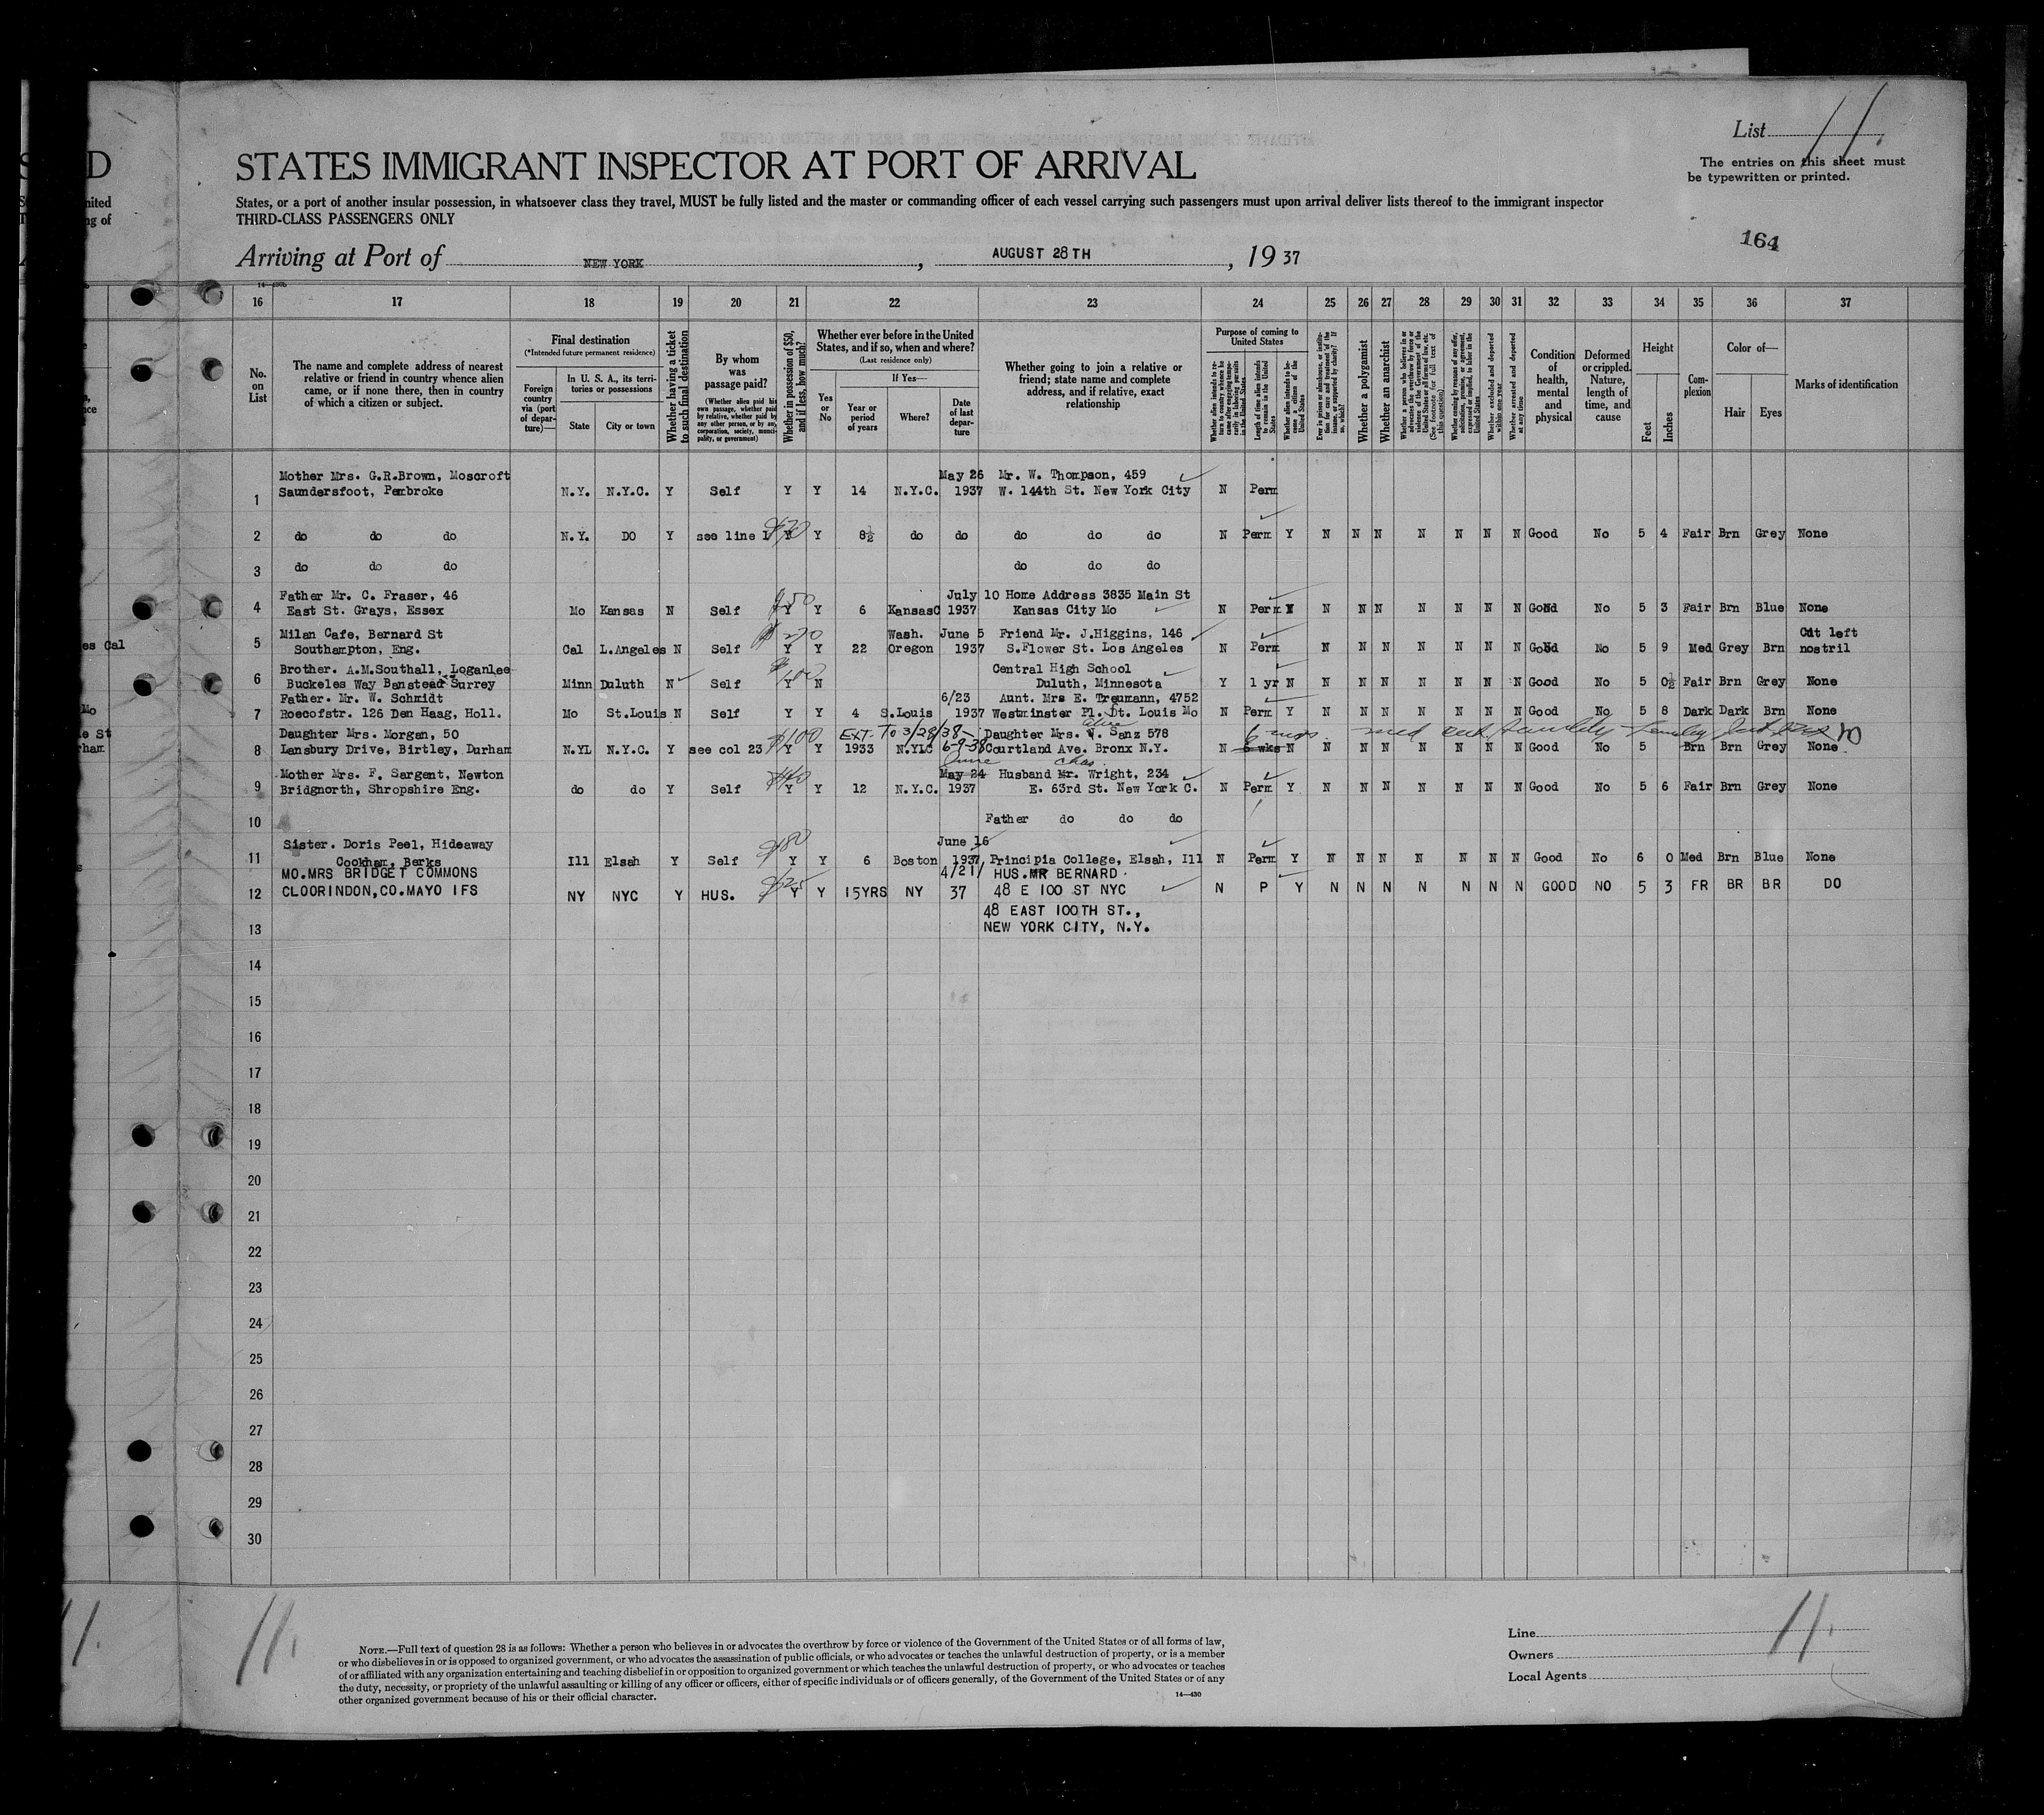 List 11.
STATES IMMIGRANT INSPECTOR AT PORT OF ARRIVAL
The entries on this sheet must
be typewritten or printed.
States, or a port of another insular possession, in whatsoever class they travel, MUST be fully listed and the master or commanding officer of each vessel carrying such passengers must upon arrival deliver lists thereof to the immigrant inspector
THIRD-CLASS PASSENGERS ONLY
164
Arriving at Port of NEW YORK, AUGUST 28TH, 19 37
16 17 18 19 20 21 22 23 24 25 26 27 28 29 30 31 32 33 34 35 36 37
No. on List
The name and complete address of nearest relative or friend in country whence alien came, or if none there, then in country of which a citizen or subject.
Final destination
(*Intended future permanent residence)
Foreign country via (port of departure)—
In U. S. A., its territories or possessions
State
City or town
Whether having a ticket to such final destination
By whom was passage paid?
(Whether alien paid his own passage, whether paid by relative, whether paid by any other person, or by any corporation, society, municipality, or government)
Whether in possession of $50, and if less, how much?
Whether ever before in the United States, and if so, when and where?
(Last residence only)
Yes or No
If Yes—
Year or period of years
Where?
Date of last departure
Whether going to join a relative or friend; state name and complete address, and if relative, exact relationship
Purpose of coming to United States
Whether a polygamist
Whether an anarchist
Condition of health, mental and physical
Deformed or crippled. Nature, length of time, and cause
Height
Feet
Inches
Complexion
Color of—
Hair
Eyes
Marks of identification
Mother Mrs. G.R.Brown, Moscroft May 26 Mr. W. Thompson, 459
1 Saundersfoot, Pembroke N.Y. N.Y.C. Y Self Y Y 14 N.Y.C. 1937 W. 144th St. New York City N Perm
2 do do do N.Y. DO Y see line 1 $70 Y Y 8½ do do do do do N Perm Y N N N N N N N Good No 5 4 Fair Brn Grey None
3 do do do do do do
Father Mr. C. Fraser, 46 July 10 Home Address 3835 Main St
4 East St. Grays, Essex Mo Kansas N Self Y Y 6 KansasC 1937 Kansas City Mo N Perm N N N N N N N Good No 5 3 Fair Brn Blue None
Milan Cafe, Bernard St Wash. June 5 Friend Mr. J.Higgins, 146 Cut left
5 Southampton, Eng. Cal L.Angeles N Self Y Y 22 Oregon 1937 S.Flower St. Los Angeles N Perm N N N N N N N Good No 5 9 Med Grey Brn nostril
Brother. A.M.Southall, Loganlee Central High School
6 Buckeles Way Banstead Surrey Minn Duluth N Self $100 Y N Duluth, Minnesota Y 1 yr N N N N N N N N Good No 5 0½ Fair Brn Grey None
Father. Mr. W. Schmidt 6/23 Aunt. Mrs E. Treumann, 4752
7 Roecofstr. 126 Den Haag, Holl. Mo St.Louis N Self Y Y 4 S.Louis 1937 Westminster Pl. St. Louis Mo N Perm Y N N N N N N N Good No 5 8 Dark Dark Brn None
Daughter Mrs. Morgan, 50 EXT. TO 3/28/38- Daughter Mrs. V. Sanz 578
8 Lansbury Drive, Birtley, Durham N.YL N.Y.C. Y see col 23 $100 Y Y 1933 N.YLC 6-9-38 Courtland Ave. Bronx N.Y. N 6 mos. N N N N N N N N Good No 5 Brn Brn Grey None
Mother Mrs. F. Sargent, Newton May 24 June Husband Mr. Chas. Wright, 234
9 Bridgnorth, Shropshire Eng. do do Y Self $40 Y Y 12 N.Y.C. 1937 E. 63rd St. New York C. N Perm Y N N N N N N N Good No 5 6 Fair Brn Grey None
10 Father do do do
Sister. Doris Peel, Hideaway June 16
11 Cookham, Berks Ill Elsah Y Self $80 Y Y 6 Boston 1937 Principia College, Elsah, Ill N Perm Y N N N N N N N Good No 6 0 Med Brn Blue None
MO.MRS BRIDGET COMMONS 4/21/ HUS.MR BERNARD
12 CLOORINDON,CO.MAYO IFS NY NYC Y HUS. $25 Y Y 15YRS NY 37 48 E 100 ST NYC N P Y N N N N N N N GOOD NO 5 3 FR BR BR DO
48 EAST 100TH ST.,
13 NEW YORK CITY, N.Y.
14
15
16
17
18
19
20
21
22
23
24
25
26
27
28
29
30
11.
11.
NOTE.—Full text of question 28 is as follows: Whether a person who believes in or advocates the overthrow by force or violence of the Government of the United States or of all forms of law,
or who disbelieves in or is opposed to organized government, or who advocates the assassination of public officials, or who advocates or teaches the unlawful destruction of property, or is a member
of or affiliated with any organization entertaining and teaching disbelief in or opposition to organized government or which teaches the unlawful destruction of property, or who advocates or teaches
the duty, necessity, or propriety of the unlawful assaulting or killing of any officer or officers, either of specific individuals or of officers generally, of the Government of the United States or of any
other organized government because of his or their official character.
14—430
Line
Owners
Local Agents
11.